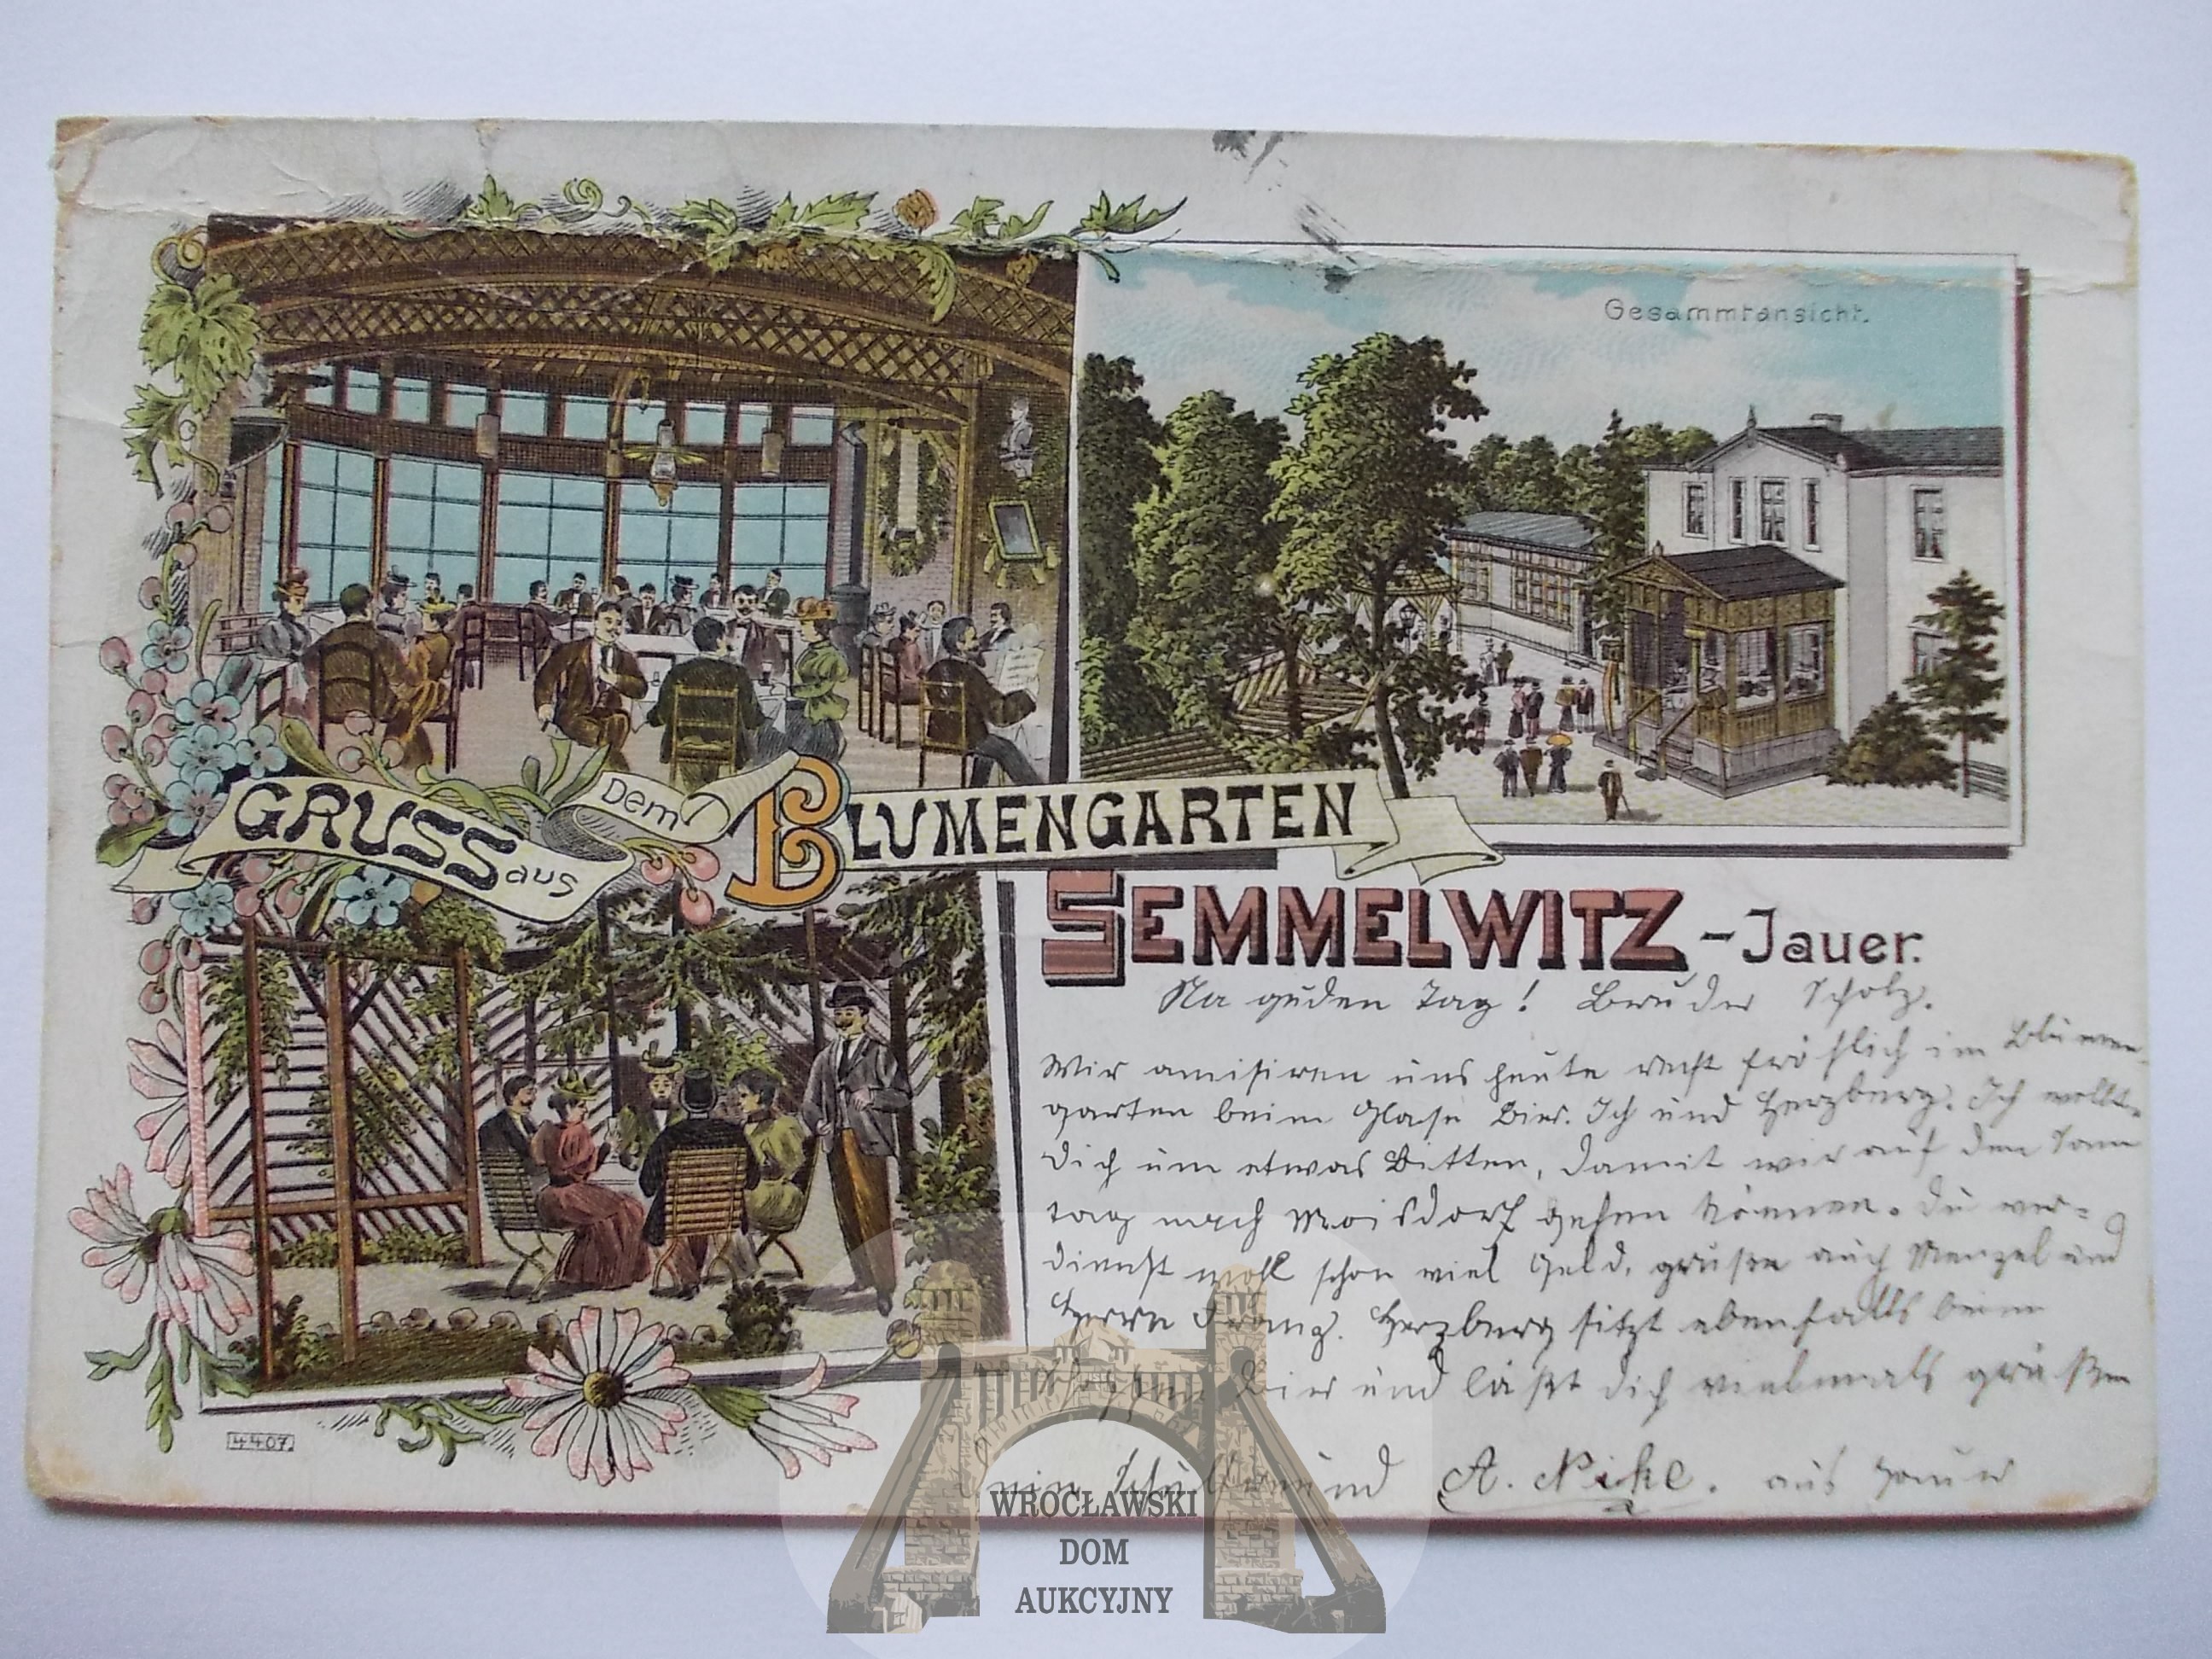 Gesammtansicht.
GRUSS aus Dem BLUMENGARTEN
SEMMELWITZ - Jauer.
Na guden Tag! Bruder Scholz.
Wir amisiren uns heute recht fröhlich im Blumen-
garten beim Glase Bier. Ich und Herzberg. Ich wollte
Dich um etwas Bitten, damit wir auf den Sonn
tag nach Moisdorf gehen können. Du ver-
dienst woll schon viel Geld, grüße auch Menzel und
Herrn Franz. Herzberg sitzt ebenfalls beim
Schoppen Bier und läßt Dich vielmals grüßen
Dein A. Nike. aus Jauer
4407.
WROCŁAWSKI
DOM
AUKCYJNY